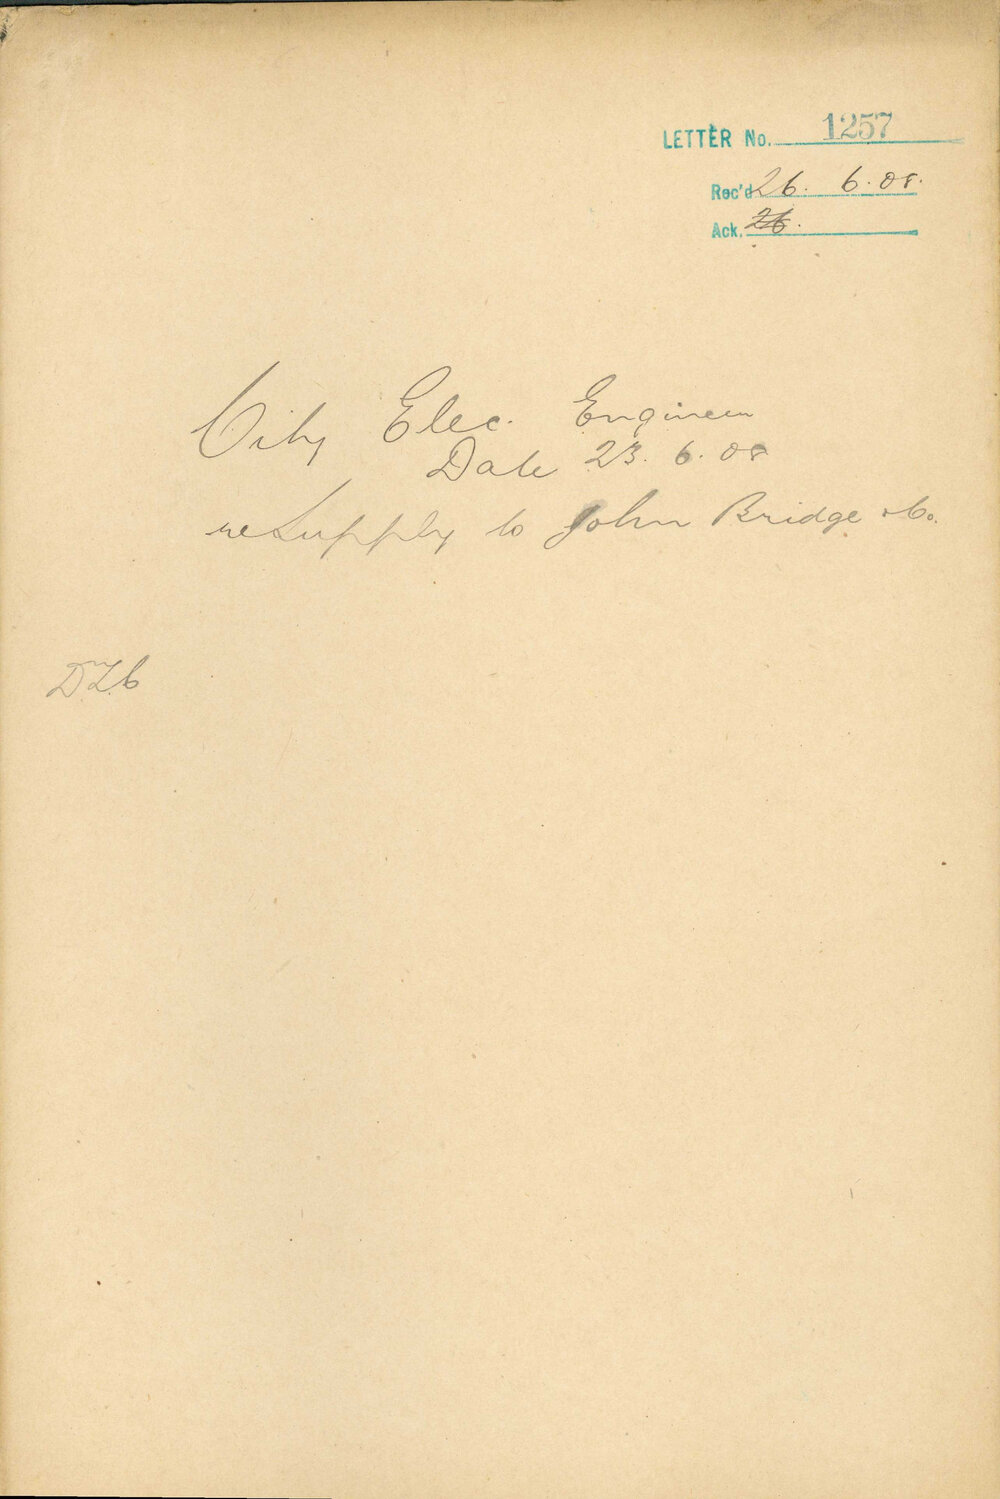 LETTER No. 1257
Rec'd 26. 6. 08.
Ack. 26.
City Elec. Engineer
Date 23. 6. 08
re Supply to John Bridge & Co.